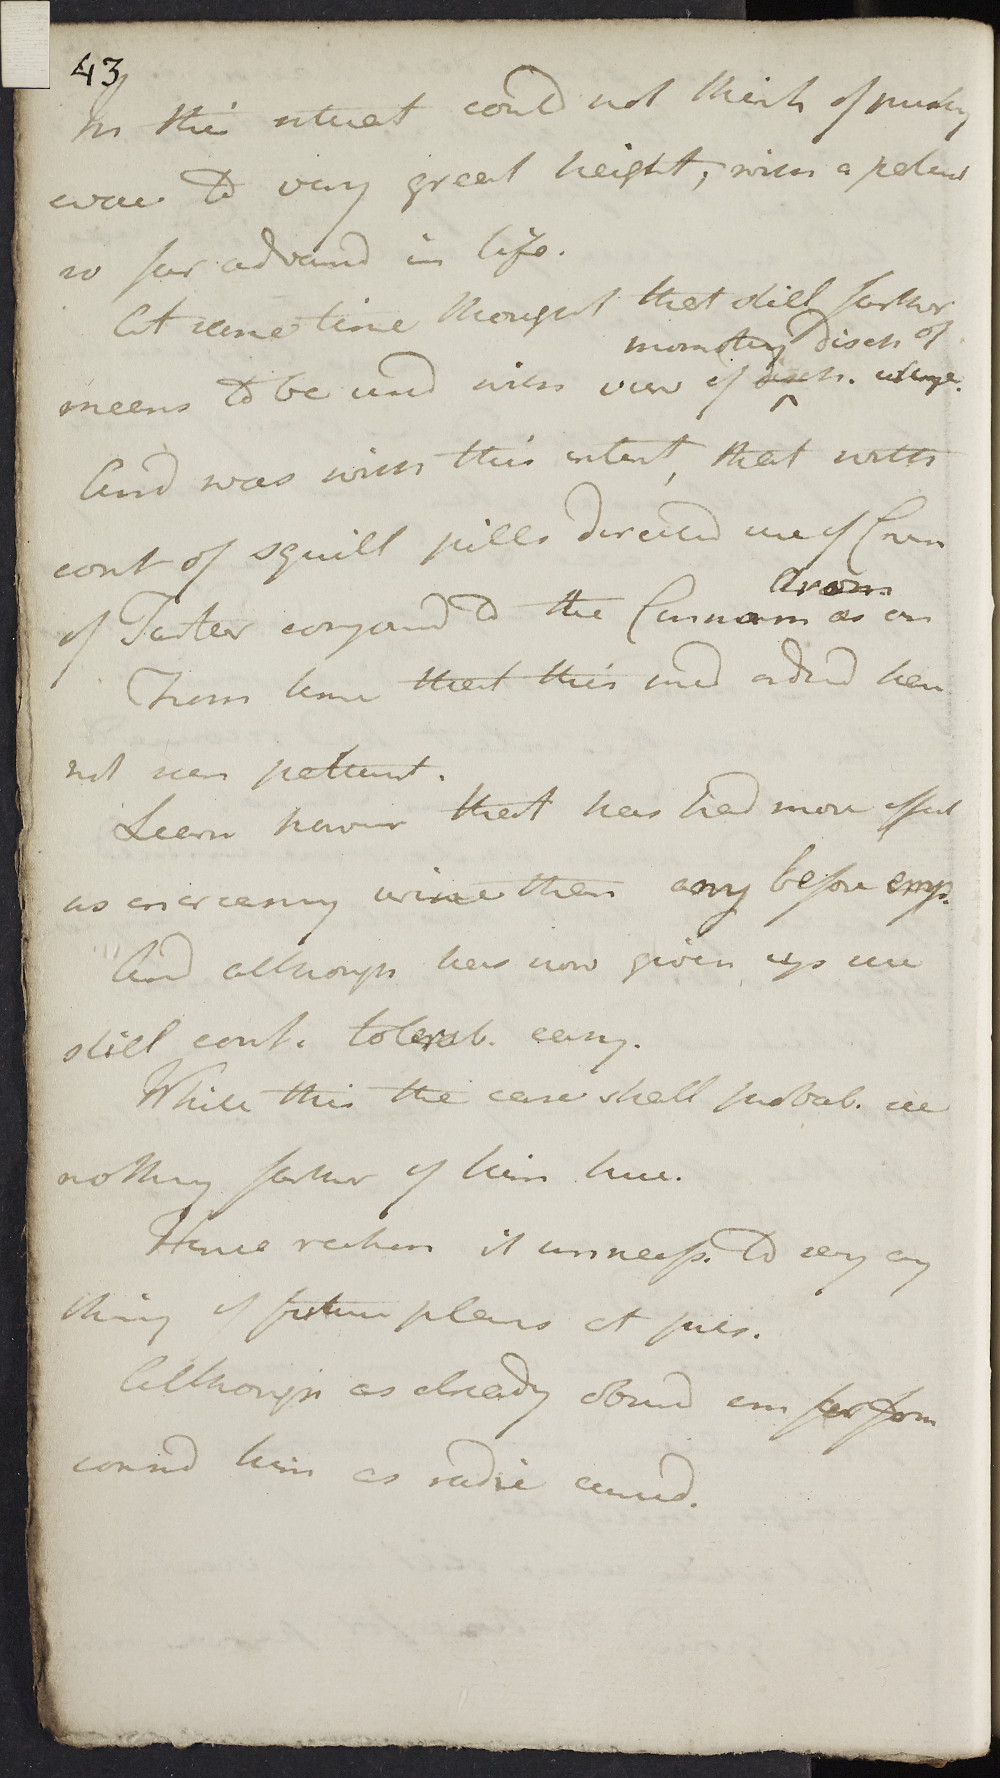 43
In this situat could not think of pushg
evac to very great height, with a patient
so far advancd in life.
At same time thought that still farther
promoting Disch of
means to be usd with view of disch. urine.
And was with this intent, that with
cont of squill pills directed use of Crem
of Tartar conjoind to the
Arom
as an
From time that this med ordred hav
not seen patient.
Learn howevr that has had more effect
as increasing urine than any before emp.
And although has now given up use
still cont. tolerab. easy.
While this the case shall probab. see
nothing farther of him here.
Hence reckon it unnecess. to say any
thing of future plans at pres.
Although as already observd am far from
considr him as radic cured.